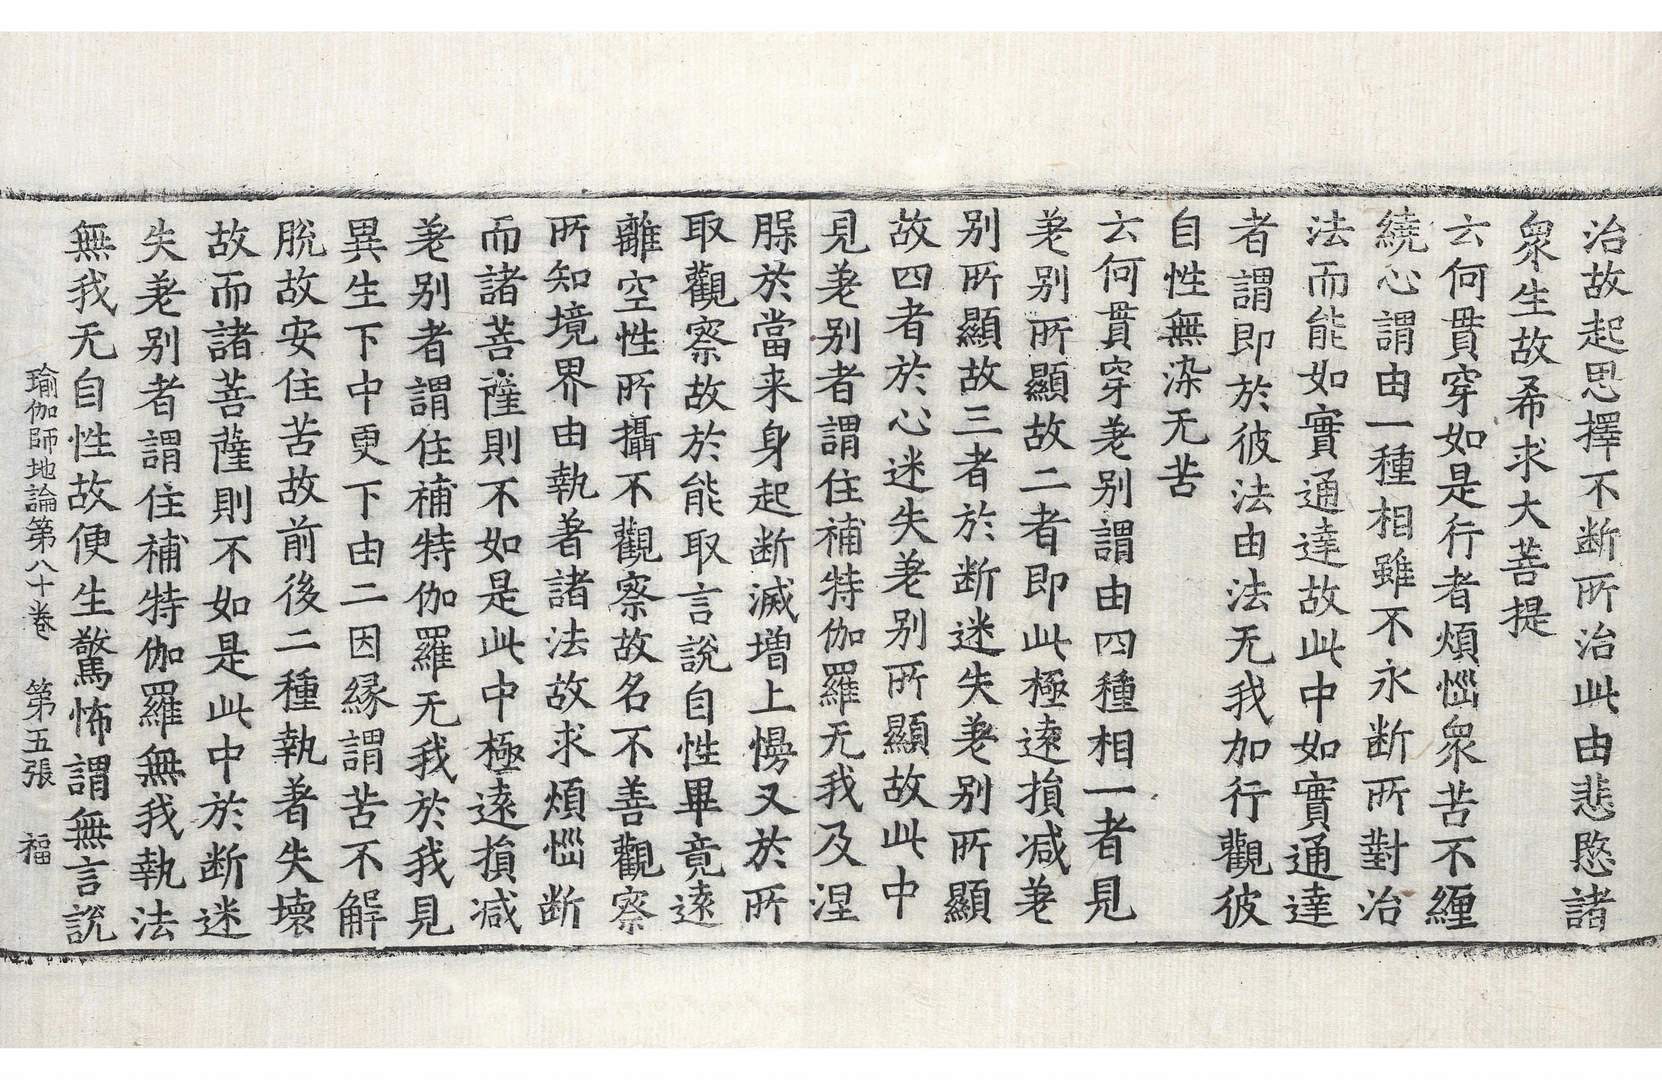 治故起思擇不断所治此由悲愍諸
衆生故希求大菩提
云何貫穿如是行者煩惱衆苦不纏
繞心謂由一種相雖不永断所對治
法而能如實通達故此中如實通達
者謂即於彼法由法无我加行觀彼
自性無染无苦
云何貫穿差别謂由四種相一者見
差别所顯故二者即此極遠損减差
别所顯故三者於断迷失差别所顯
故四者於心迷失差别所顯故此中
見差别者謂住補特伽羅无我及涅
脲於當来身起断滅増上慢又於所
取觀察故於能取言說自性畢竟遠
離空性所攝不觀察故名不善觀察
所知境界由執著諸法故求煩惱断
而諸菩薩則不如是此中極遠損减
差别者謂住補特伽羅无我於我見
異生下中更下由二因縁謂苦不解
脫故安住苦故前後二種執著失壞
故而諸菩薩則不如是此中於断迷
失差别者謂住補特伽羅無我執法
無我无自性故便生驚怖謂無言說
瑜伽師地論第八十卷 第五張 福